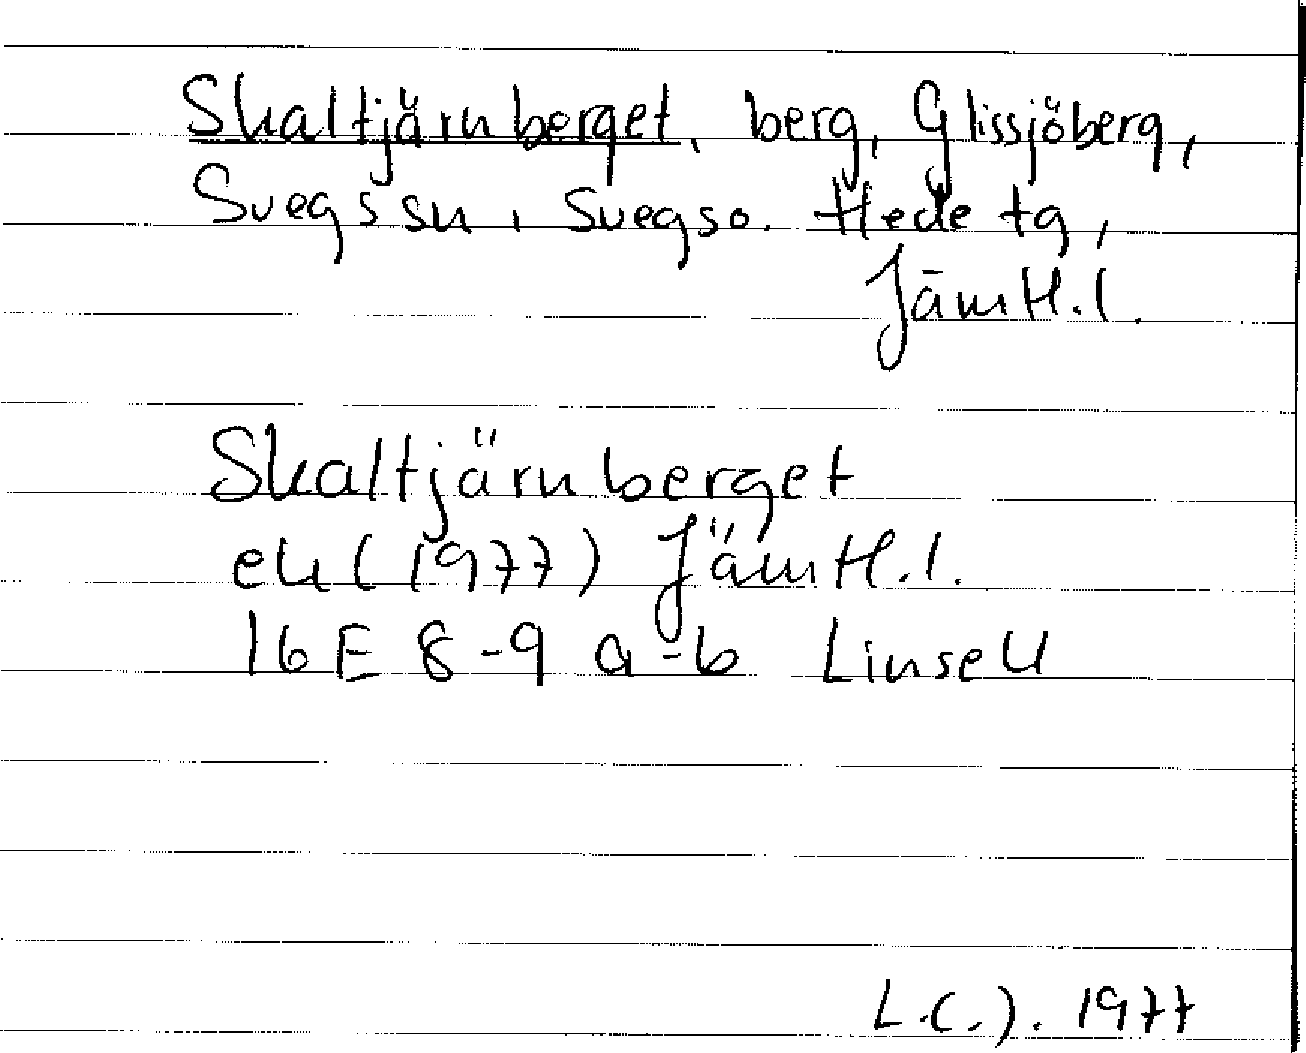 Skaltjärnberget, berg, Glissjöberg,
Svegs sn, Svegs o. Hede tg,
Jämtl.l.
Skaltjärnberget
ek (1977) Jämtl.l.
16E 8-9 a-b Linsell
1977